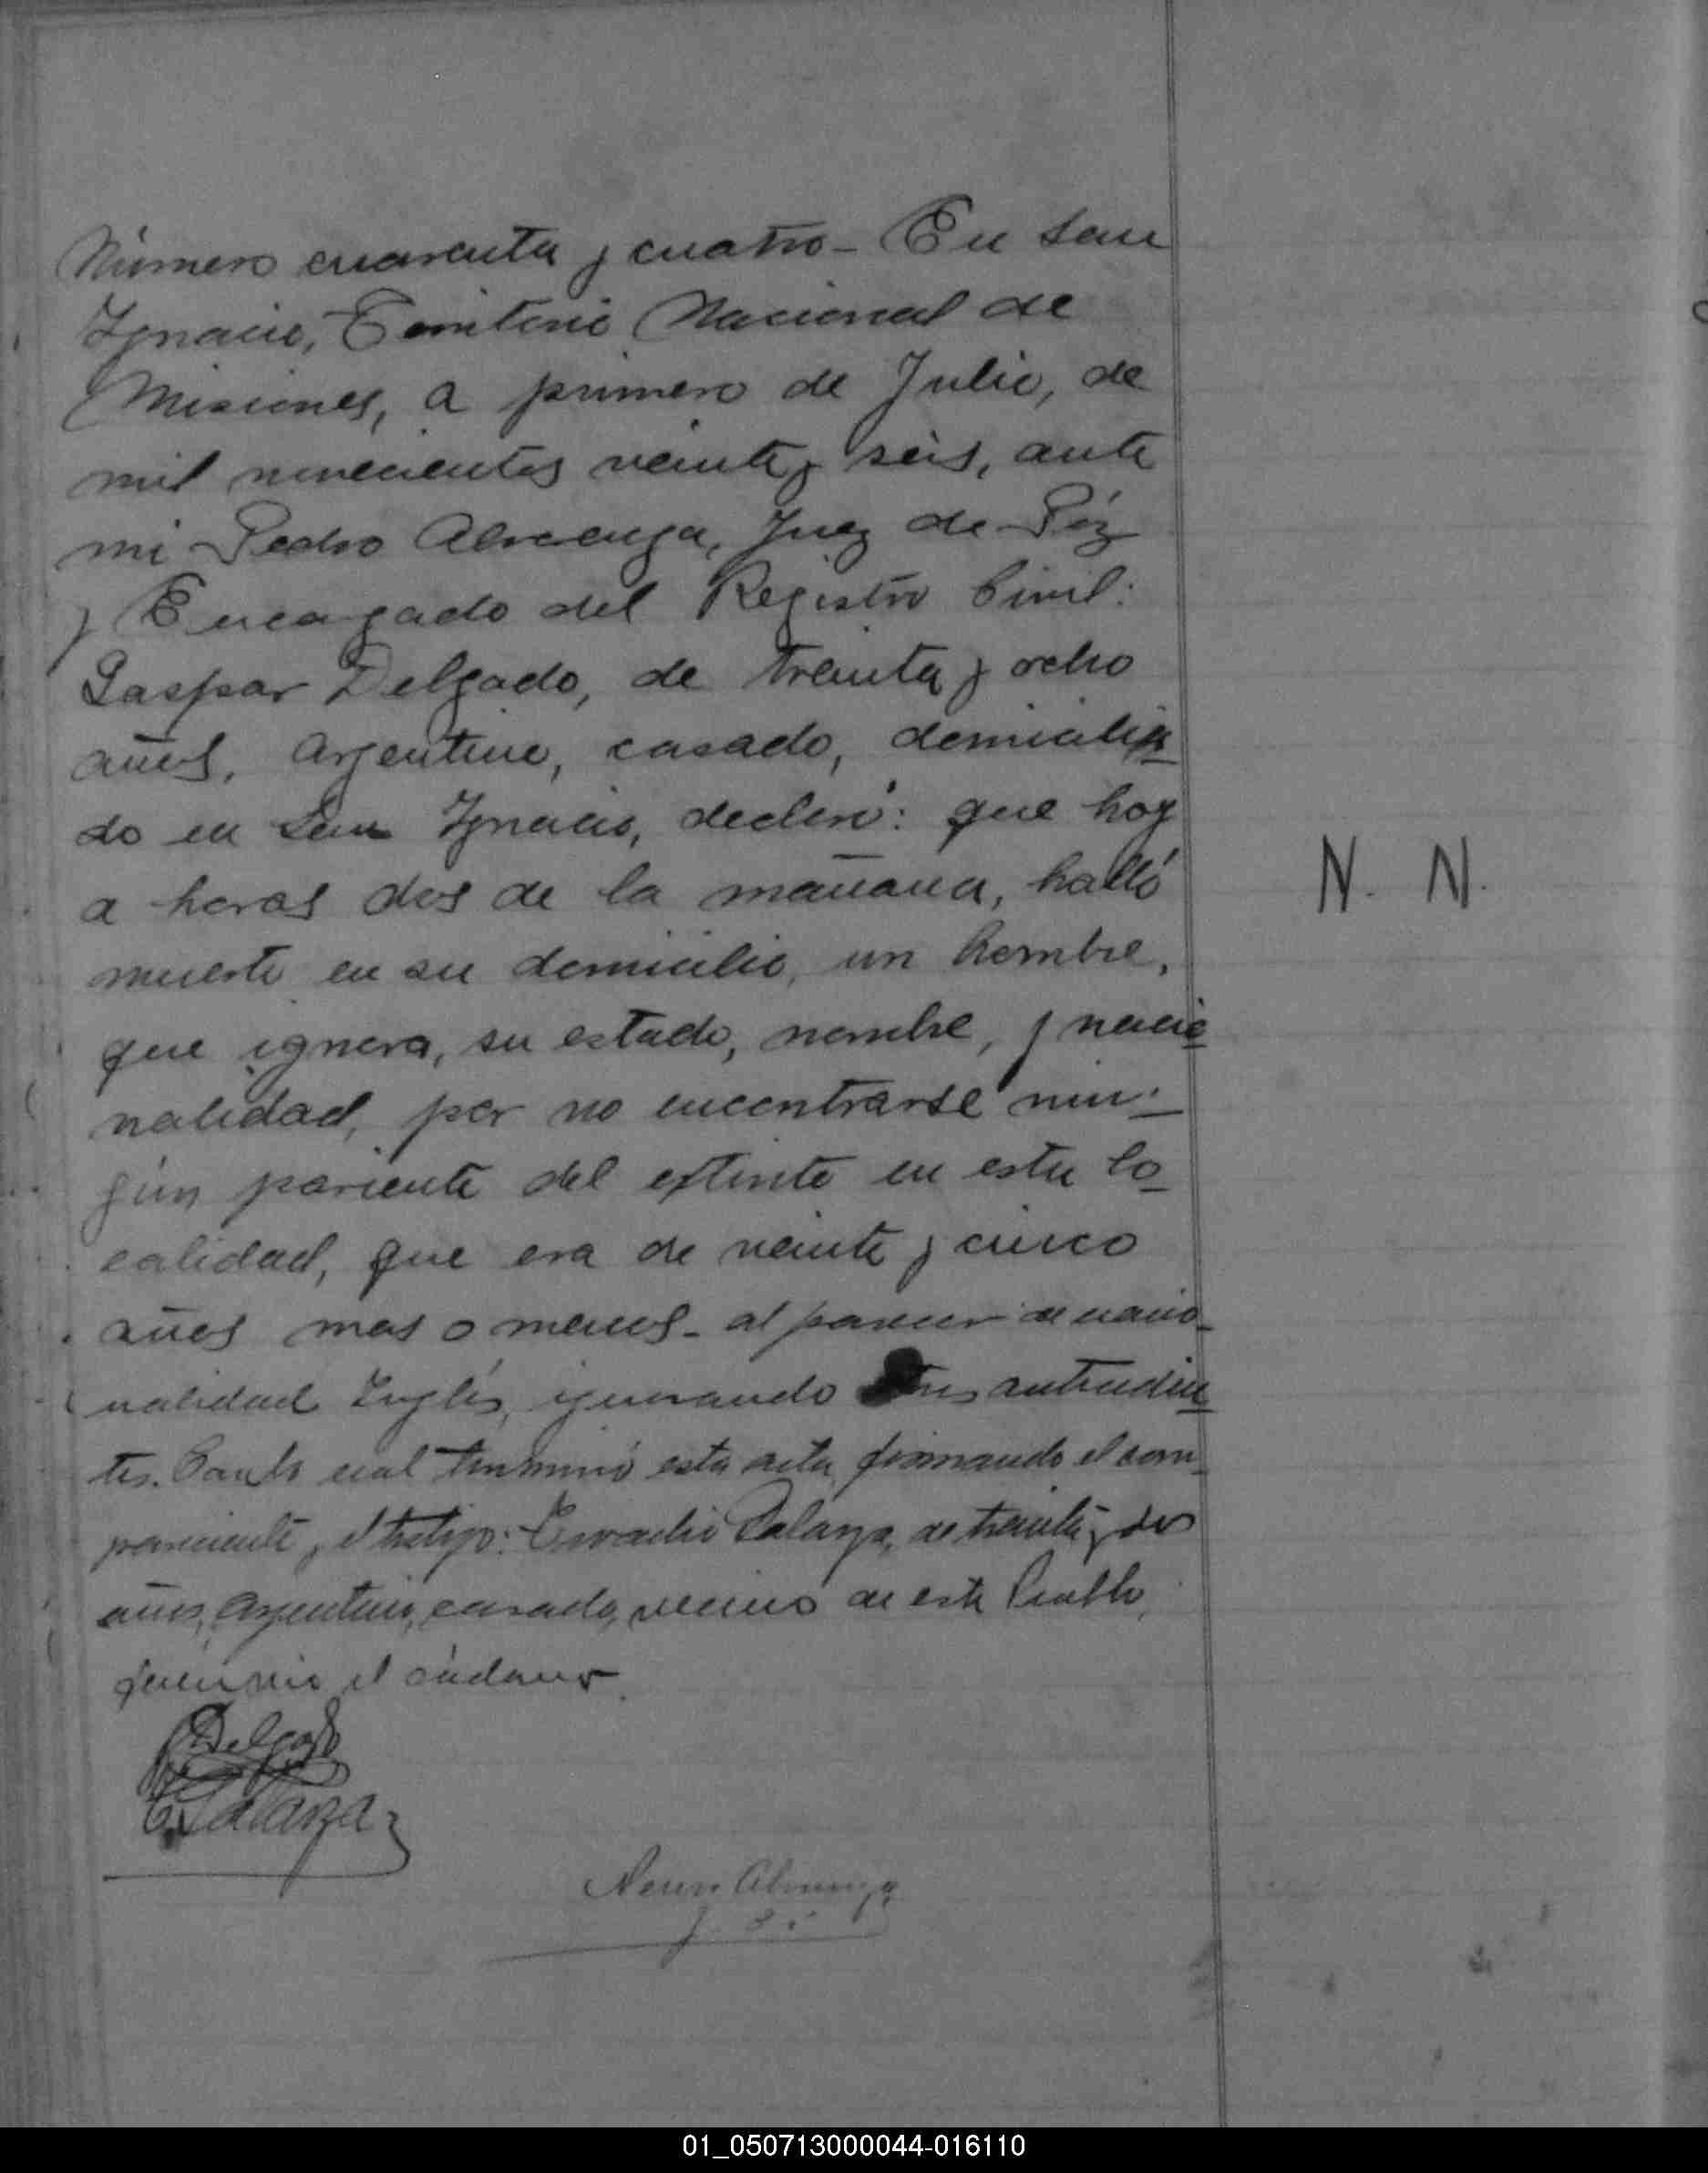 Número cuarenta y cuatro - En San
Ignacio, Territorio Nacional de
Misiones, a primero de Julio, de
mil novecientos veinte y seis, ante
mi Pedro Alvarenga, Juez de Páz
y Encargado del Registro Civil:
Gaspar Delgado, de treinta y ocho
años, argentino, casado, domicilia
do en San Ignacio, declaró: que hoy
a horas dos de la mañana, halló
muerto en su domicilio, un hombre,
que ignora, su estado, nombre, y nacio
nalidad, por no encontrarse nin-
gún pariente del extinto en esta lo
calidad, que era de veinte y cinco
años mas o menos - al parecer de nacio-
nalidad Inglés, ignorando antecedén
tes. Con lo cual terminó esta acta, firmando el com-
pareciente y el testigo: Salazar, de treinta y dos
años, Argentino, casado, vecino de este Pueblo,
quien vio el cadaver.
N. N.
Delgado
E. Salazar
Alvarenga
01_050713000044-016110